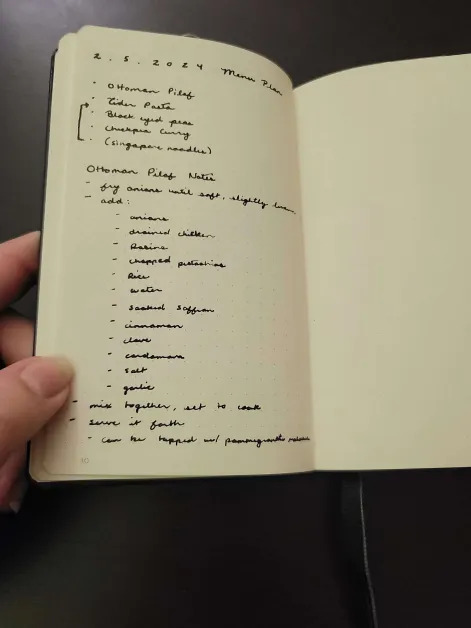 2.5.2024 Menu Plan
· Ottoman Pilaf
· Pasta
· Black eyed peas
· Chickpea Curry
· (singapore noodles)
Ottoman Pilaf Notes
- fry onions until soft, slightly brown
- add:
- onions
- drained chicken
- Raisins
- chopped pistachios
- Rice
- water
- soaked saffron
- cinnamon
- clove
- cardamom
- salt
- garlic
- mix together, set to cook
- serve it forth
- can be topped w/ pommegranate
10